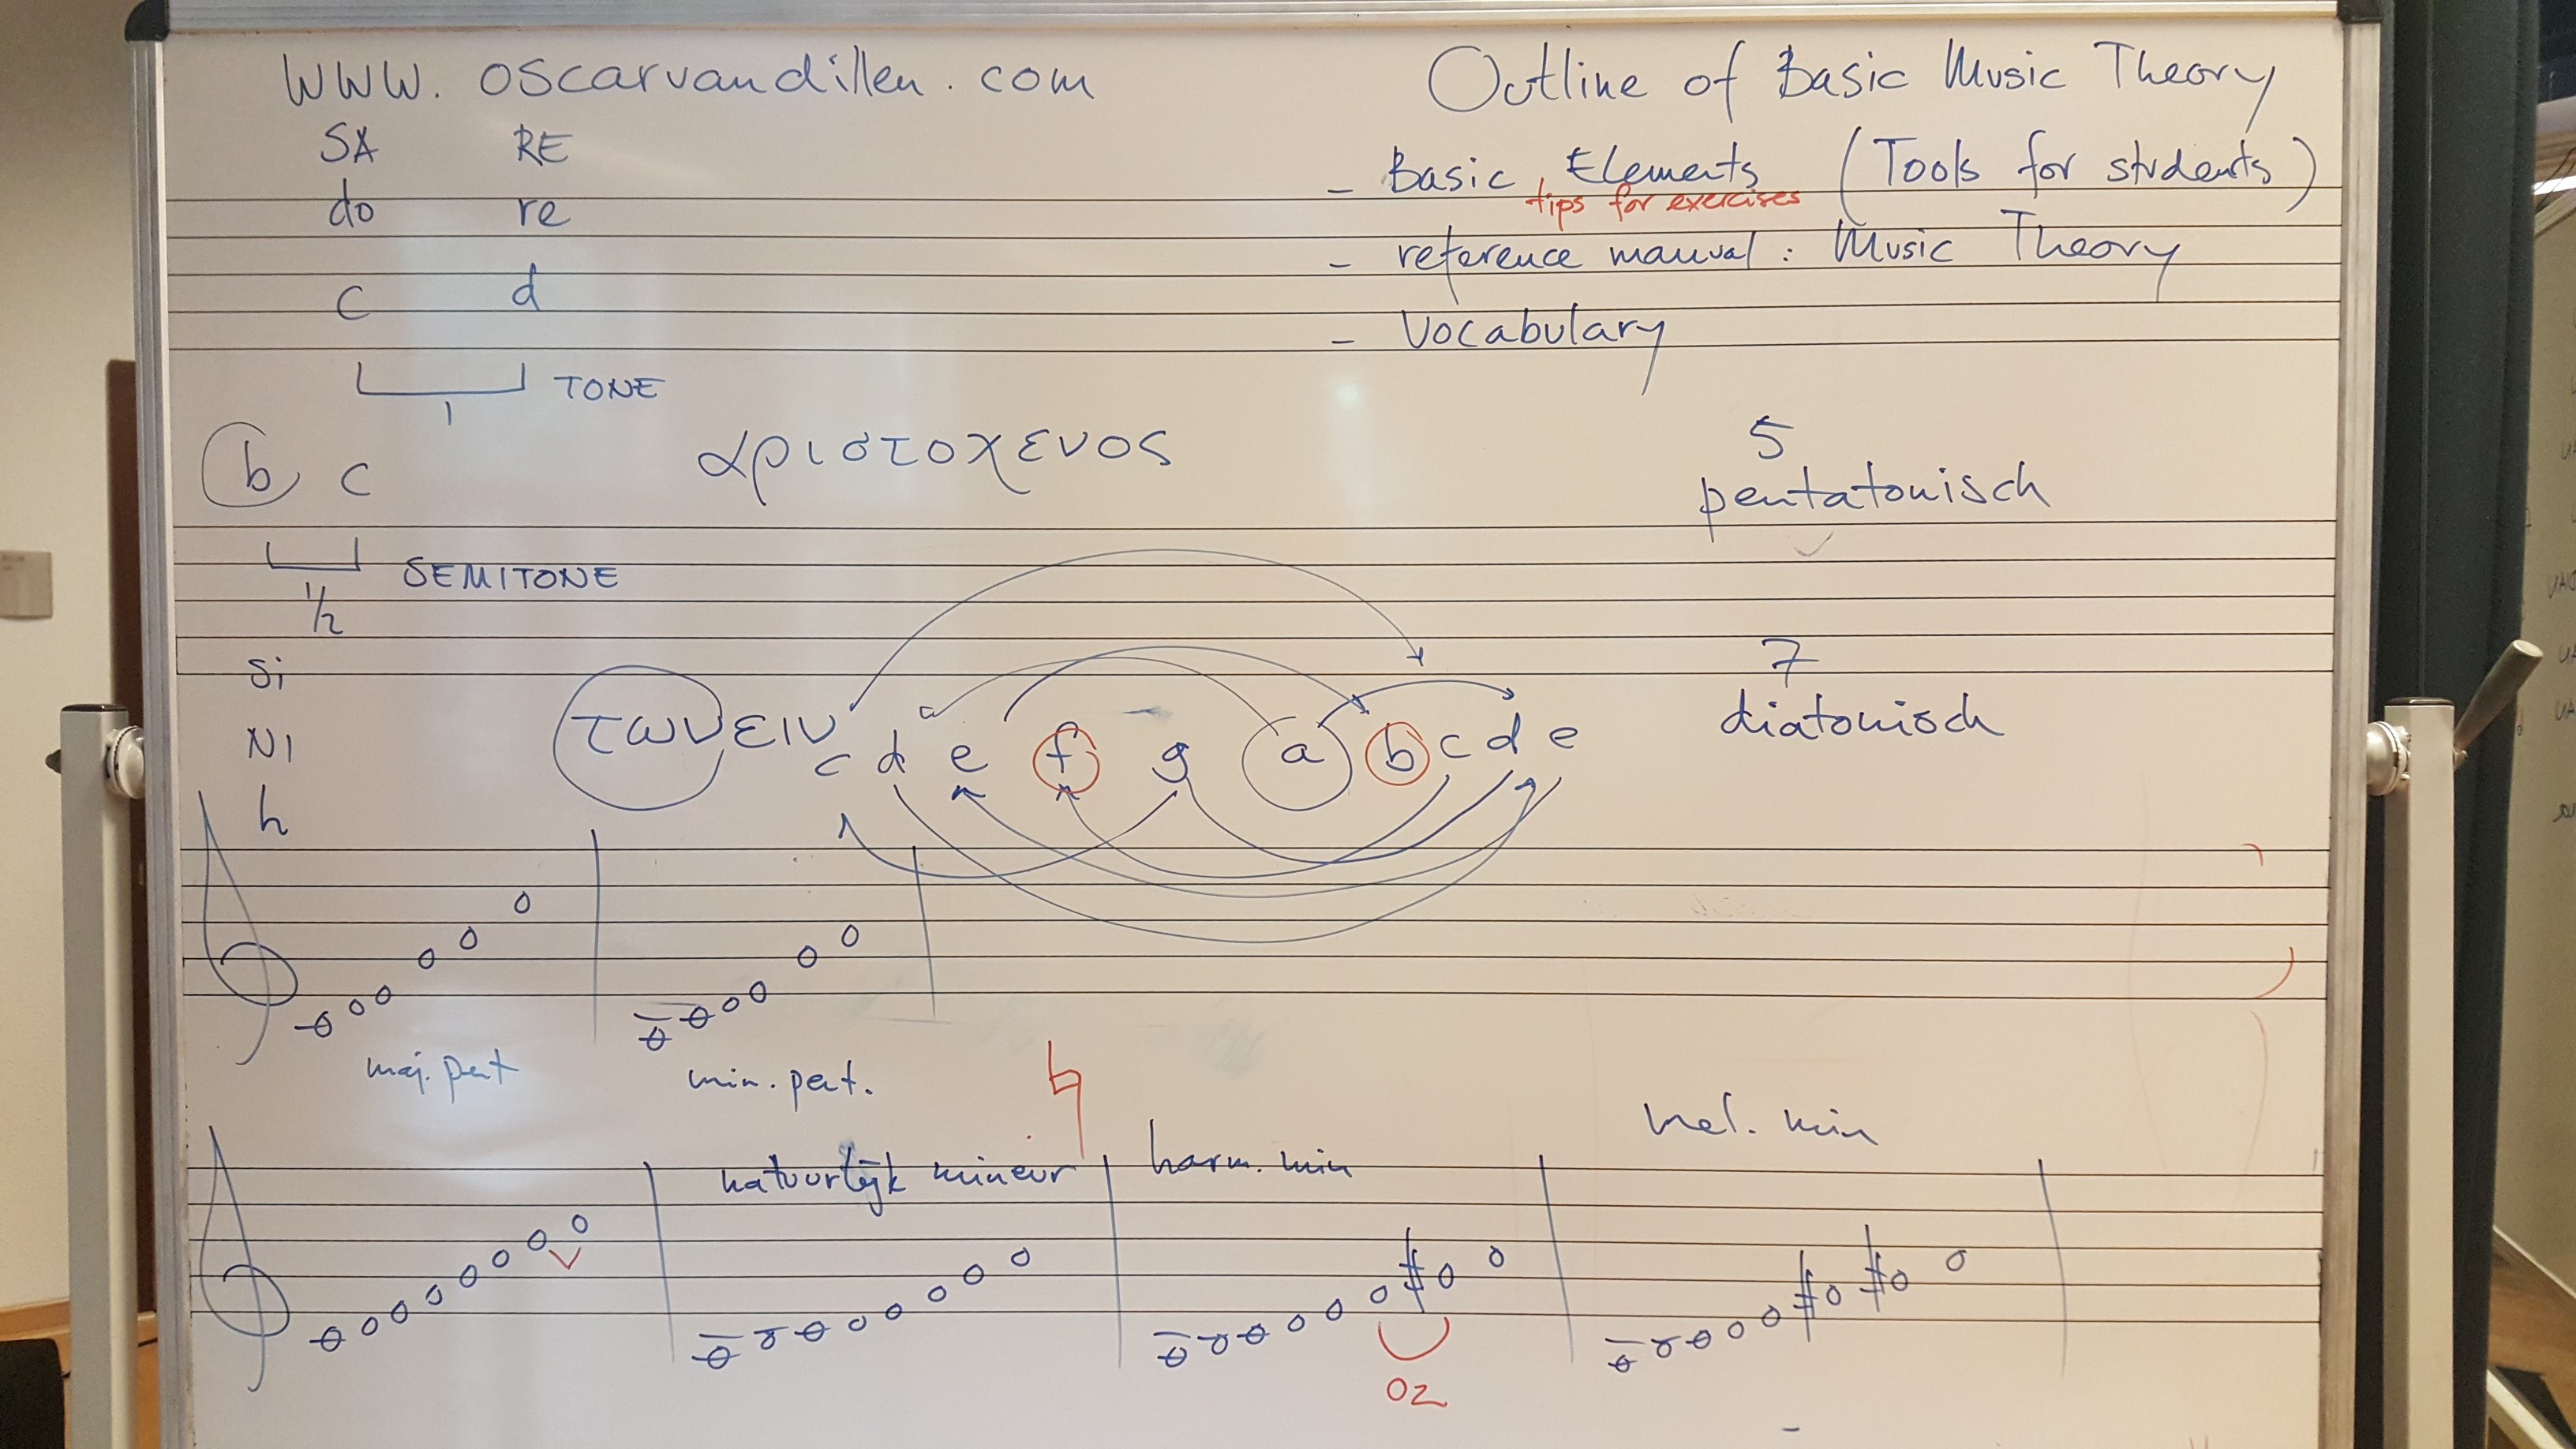 www.oscarvandillen.com
Outline of Basic Music Theory
SA RE
do re
c d
1 TONE
- Basic Elements (Tools for students)
tips for exercises
- reference manual : Music Theory
- Vocabulary
b c
αριστοχενος
5
pentatonisch
1/2 SEMITONE
si
NI
h
τωνειν c d e f g a b c d e
7
diatonisch
maj. pent
min. pent.
natuurlijk mineur
harm. min
mel. min
02